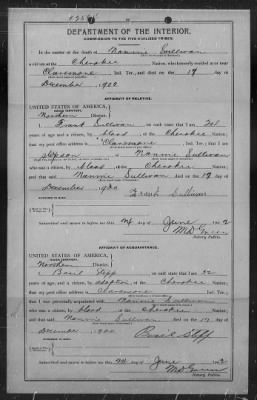 DEPARTMENT OF THE INTERIOR,
COMMISSION TO THE FIVE CIVILIZED TRIBES.
In the matter of the death of Nannie Sullivan
a citizen of the Cherokee Nation, who formerly resided at or near
Claremore, Ind. Ter., and died on the 19 day of
December, 1900
AFFIDAVIT OF RELATIVE.
UNITED STATES OF AMERICA,
INDIAN TERRITORY,
Northern District.
I, Frank Sullivan on oath state that I am
years of age and a citizen, by blood of the Cherokee Nation;
that my post office address is Claremore, Ind. Ter.; that I am
of Nannie Sullivan
who was a citizen, by blood of the Cherokee Nation;
and that said Nannie Sullivan died on the 19 day of
December, 1900
Frank Sullivan
Subscribed and sworn to before me this 24 day of June 1902
Notary Public.
AFFIDAVIT OF ACQUAINTANCE.
UNITED STATES OF AMERICA,
INDIAN TERRITORY,
Northern District.
I, on oath state that I am 52
years of age, and a citizen by adoption of the Cherokee Nation;
that my post office address is Claremore, Ind. Ter.;
that I was personally acquainted with Nannie Sullivan
who was a citizen, by blood of the Cherokee Nation;
and that said Nannie Sullivan died on the 19 day of
December, 1900
Subscribed and sworn to before me this 24 day of June 1902
Notary Public.